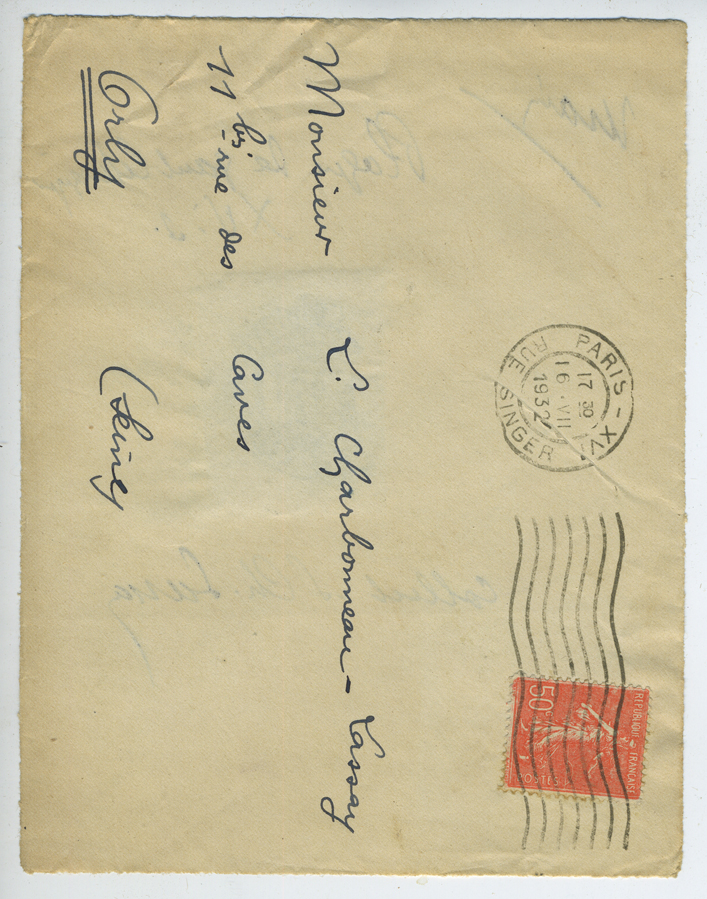 Monsieur L. Charbonneau-Lassay
11 bis rue des Caves
Orly (Seine)
PARIS-XVI
RUE SINGER
17 30
16 .VII
1932
RÉPUBLIQUE FRANÇAISE
50c
POSTES